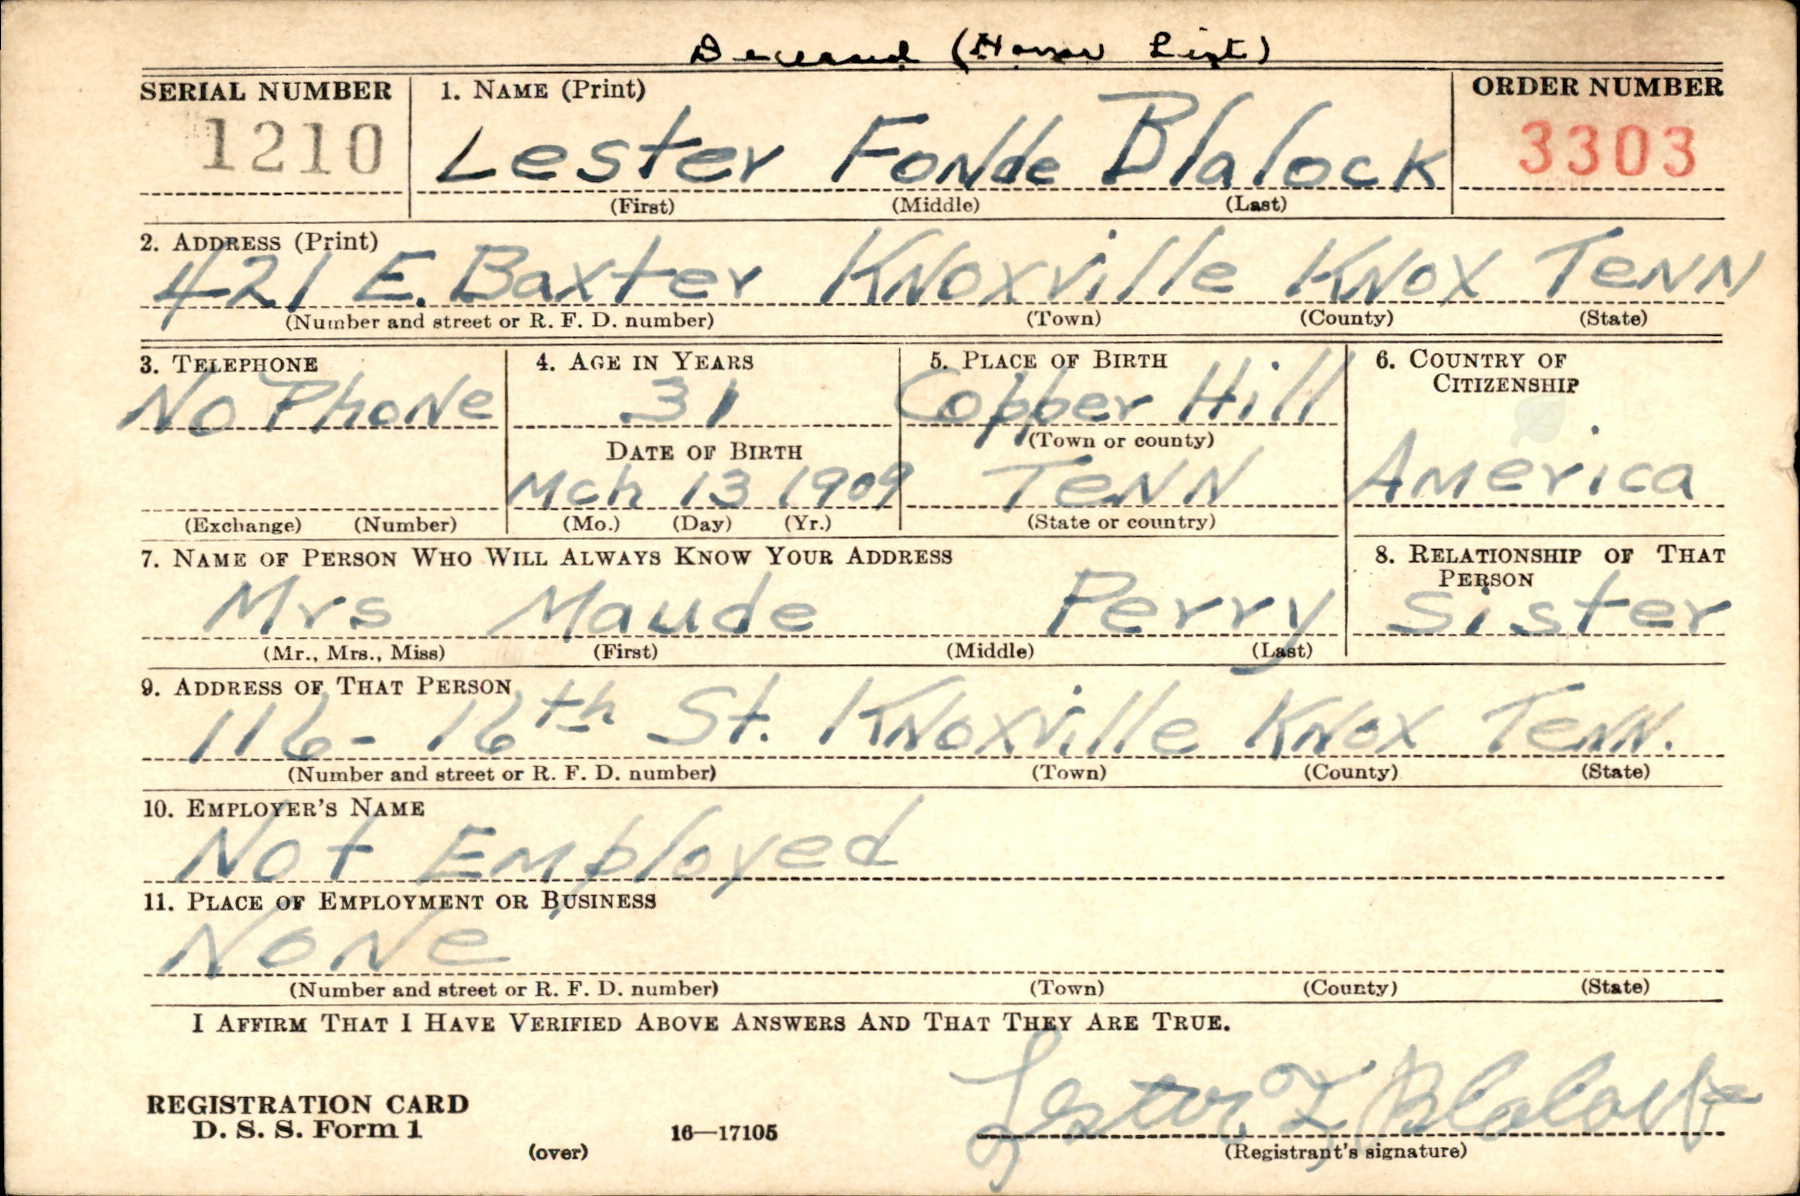 Deceased (Honor List)
SERIAL NUMBER 1. NAME (Print) ORDER NUMBER
1210 Lester Fonde Blalock 3303
(First) (Middle) (Last)
2. ADDRESS (Print)
421 E. Baxter Knoxville Knox Tenn
(Number and street or R. F. D. number) (Town) (County) (State)
3. TELEPHONE 4. AGE IN YEARS 5. PLACE OF BIRTH 6. COUNTRY OF
CITIZENSHIP
No Phone 31 Copper Hill
DATE OF BIRTH (Town or county)
Mch 13 1909 Tenn America
(Exchange) (Number) (Mo.) (Day) (Yr.) (State or country)
7. NAME OF PERSON WHO WILL ALWAYS KNOW YOUR ADDRESS 8. RELATIONSHIP OF THAT
PERSON
Mrs Maude Perry Sister
(Mr., Mrs., Miss) (First) (Middle) (Last)
9. ADDRESS OF THAT PERSON
116- 16th St. Knoxville Knox Tenn.
(Number and street or R. F. D. number) (Town) (County) (State)
10. EMPLOYER'S NAME
Not Employed
11. PLACE OF EMPLOYMENT OR BUSINESS
None
(Number and street or R. F. D. number) (Town) (County) (State)
I AFFIRM THAT I HAVE VERIFIED ABOVE ANSWERS AND THAT THEY ARE TRUE.
Lester F Blalock
REGISTRATION CARD
D. S. S. Form 1 16—17105
(over) (Registrant's signature)